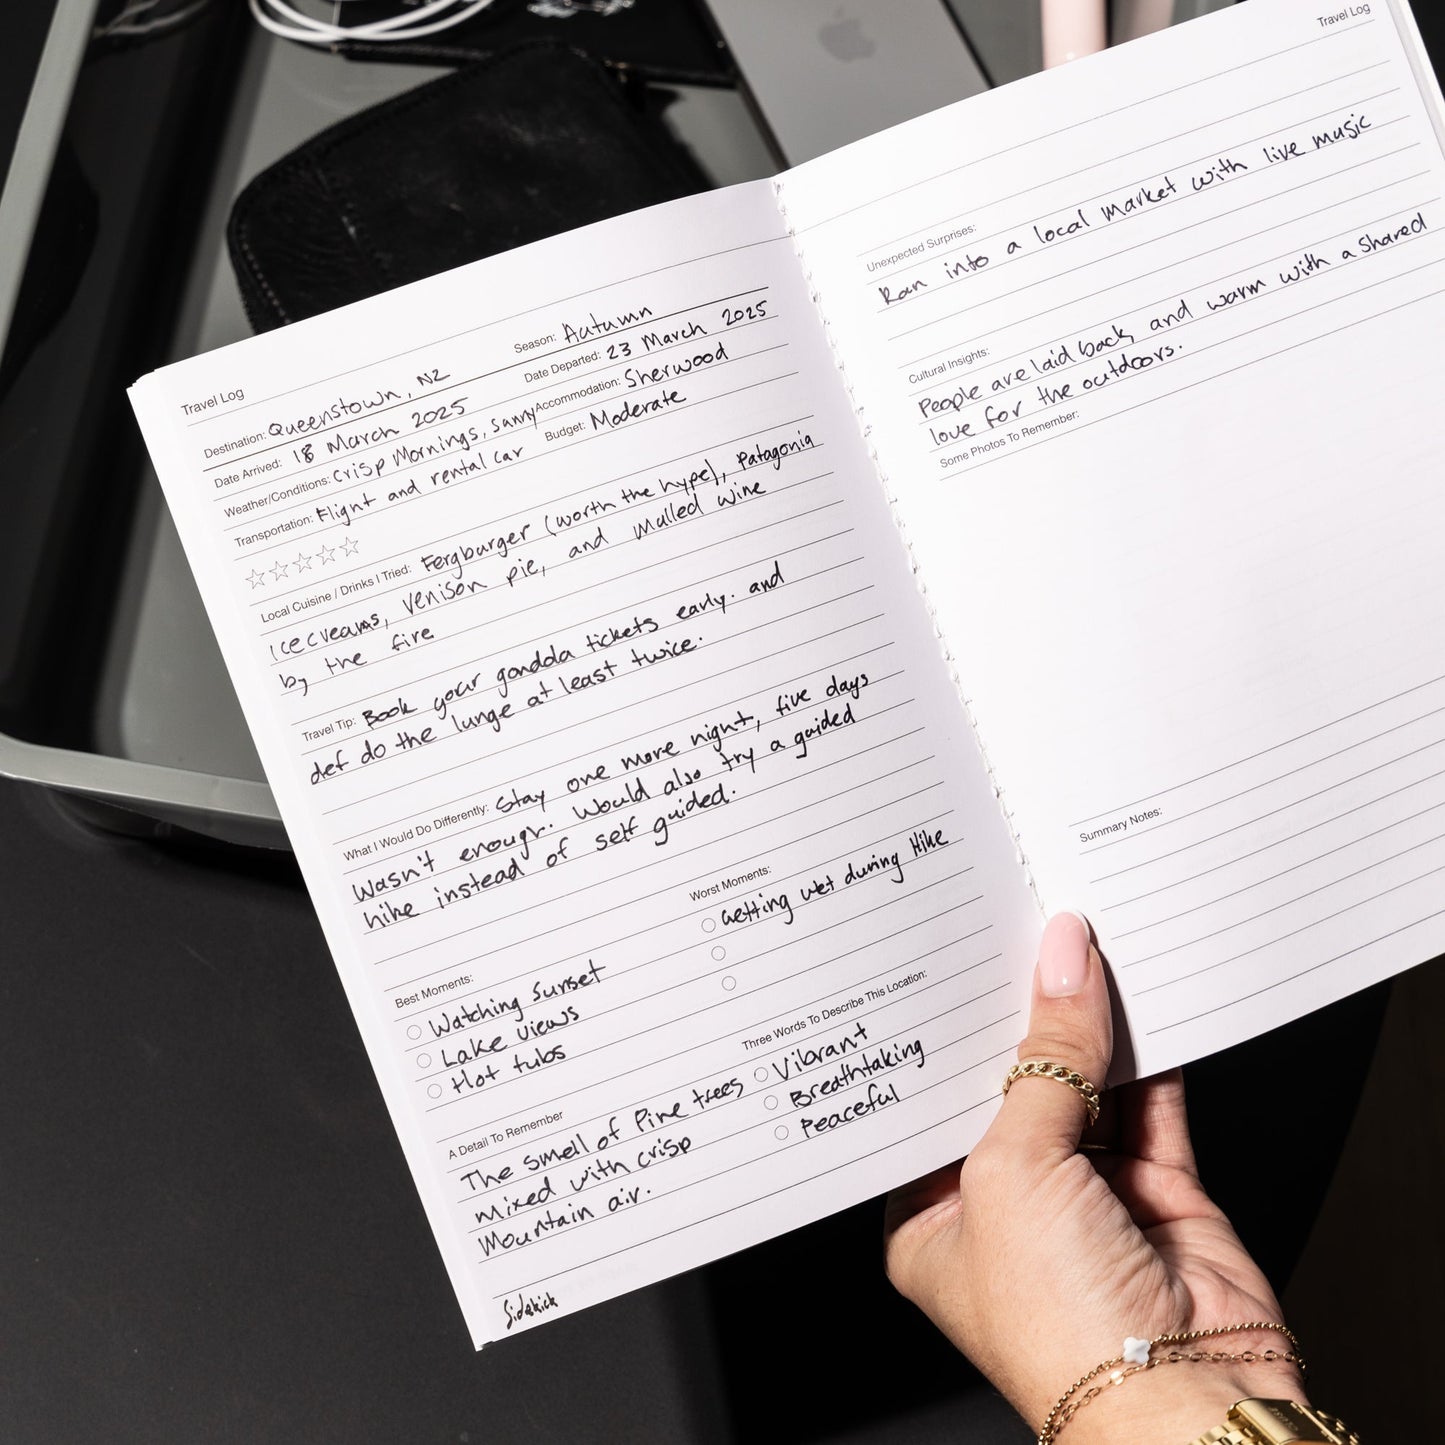 Travel Log
Destination: Queenstown, NZ Season: Autumn
Date Arrived: 18 March 2025 Date Departed: 23 March 2025
Weather/Conditions: Crisp Mornings, sunny Accommodation: Sherwood
Transportation: Flight and rental car Budget: Moderate
Local Cuisine / Drinks I Tried: Fergburger (worth the hype), Patagonia
icecreams, venison pie, and mulled wine
by the fire
Travel Tip: Book your gondola tickets early. and
def do the lunge at least twice.
What I Would Do Differently: Stay one more night, five days
wasn't enough. Would also try a guided
hike instead of self guided.
Best Moments:
Watching Sunset
Lake views
Hot tubs
Worst Moments:
Getting wet during Hike
A Detail To Remember
The smell of Pine trees
mixed with crisp
Mountain air.
Three Words To Describe This Location:
Vibrant
Breathtaking
Peaceful
Sidekick
Travel Log
Unexpected Surprises:
Ran into a local market with live music
Cultural Insights:
People are laid back, and warm with a shared
love for the outdoors.
Some Photos To Remember:
Summary Notes: